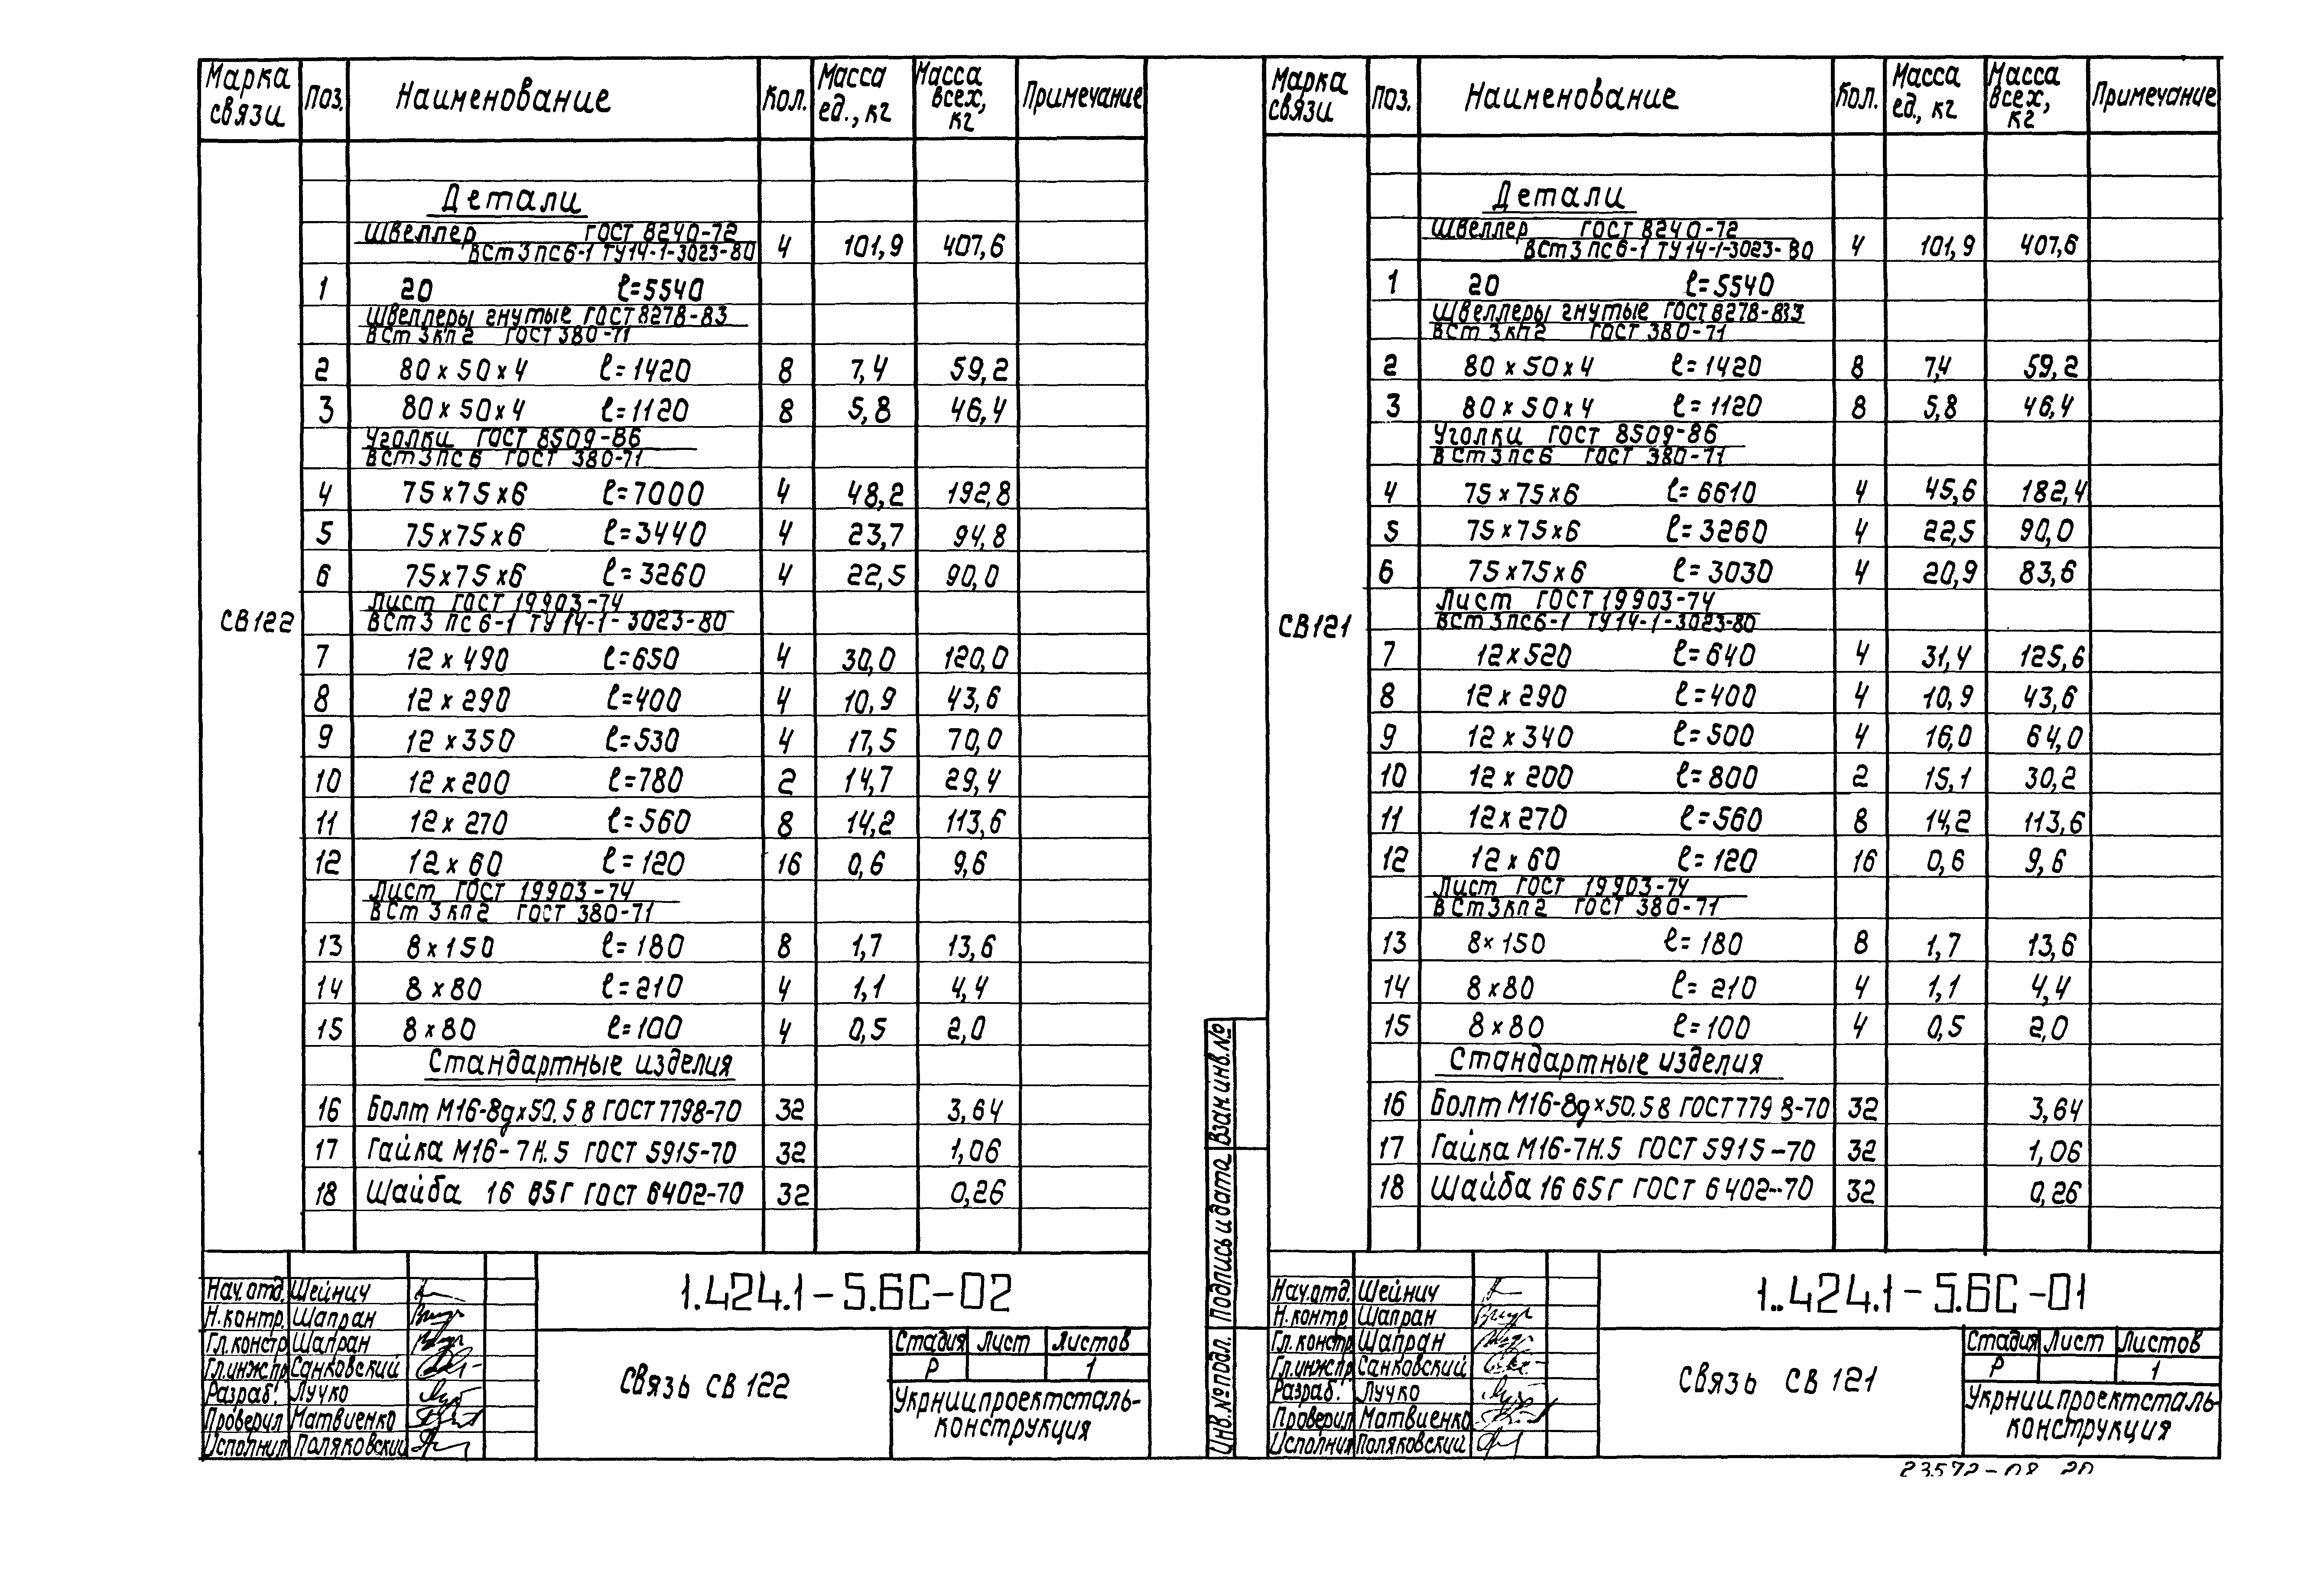 Марка связи Поз. Наименование Кол. Масса ед., кг Масса всех, кг Примечание
Детали
Швеллер ГОСТ 8240-72
ВСт3пс6-1 ТУ14-1-3023-80 4 101,9 407,6
1 20 ℓ=5540
Швеллеры гнутые ГОСТ 8278-83
ВСт3кп2 ГОСТ 380-71
2 80×50×4 ℓ=1420 8 7,4 59,2
3 80×50×4 ℓ=1120 8 5,8 46,4
Уголки ГОСТ 8509-86
ВСт3пс6 ГОСТ 380-71
4 75×75×6 ℓ=7000 4 48,2 192,8
5 75×75×6 ℓ=3440 4 23,7 94,8
6 75×75×6 ℓ=3260 4 22,5 90,0
Лист ГОСТ 19903-74
СВ122 ВСт3пс6-1 ТУ14-1-3023-80
7 12×490 ℓ=650 4 30,0 120,0
8 12×290 ℓ=400 4 10,9 43,6
9 12×350 ℓ=530 4 17,5 70,0
10 12×200 ℓ=780 2 14,7 29,4
11 12×270 ℓ=560 8 14,2 113,6
12 12×60 ℓ=120 16 0,6 9,6
Лист ГОСТ 19903-74
ВСт3кп2 ГОСТ 380-71
13 8×150 ℓ=180 8 1,7 13,6
14 8×80 ℓ=210 4 1,1 4,4
15 8×80 ℓ=100 4 0,5 2,0
Стандартные изделия
16 Болт М16-8g×50.58 ГОСТ7798-70 32 3,64
17 Гайка М16-7Н.5 ГОСТ 5915-70 32 1,06
18 Шайба 16 65Г ГОСТ 6402-70 32 0,26
1.424.1-5.6С-02
Нач.отд. Шейнич
Н.контр. Шапран
Гл.констр Шапран
Гл.инж.пр Санковский
Разраб. Лучко
Проверил Матвиенко
Исполнил Поляковский
Связь СВ 122
Стадия Лист Листов
Р 1
Укрниипроектсталь-
конструкция
Марка связи Поз. Наименование Кол. Масса ед., кг Масса всех, кг Примечание
Детали
Швеллер ГОСТ 8240-72
ВСт3пс6-1 ТУ14-1-3023-80 4 101,9 407,6
1 20 ℓ=5540
Швеллеры гнутые ГОСТ 8278-833
ВСт3кп2 ГОСТ 380-71
2 80×50×4 ℓ=1420 8 7,4 59,2
3 80×50×4 ℓ=1120 8 5,8 46,4
Уголки ГОСТ 8509-86
ВСт3пс6 ГОСТ 380-71
4 75×75×6 ℓ=6610 4 45,6 182,4
5 75×75×6 ℓ=3260 4 22,5 90,0
6 75×75×6 ℓ=3030 4 20,9 83,6
Лист ГОСТ 19903-74
СВ121 ВСт3пс6-1 ТУ14-1-3023-80
7 12×520 ℓ=640 4 31,4 125,6
8 12×290 ℓ=400 4 10,9 43,6
9 12×340 ℓ=500 4 16,0 64,0
10 12×200 ℓ=800 2 15,1 30,2
11 12×270 ℓ=560 8 14,2 113,6
12 12×60 ℓ=120 16 0,6 9,6
Лист ГОСТ 19903-74
ВСт3кп2 ГОСТ 380-71
13 8×150 ℓ=180 8 1,7 13,6
14 8×80 ℓ=210 4 1,1 4,4
15 8×80 ℓ=100 4 0,5 2,0
Стандартные изделия
16 Болт М16-8g×50.58 ГОСТ7798-70 32 3,64
17 Гайка М16-7Н.5 ГОСТ 5915-70 32 1,06
18 Шайба 16 65Г ГОСТ 6402-70 32 0,26
Взам инв.№
Подпись и дата
Инв.№ подл.
1..424.1-5.6С-01
Нач.отд. Шейнич
Н.контр Шапран
Гл.констр. Шапран
Гл.инж.пр Санковский
Разраб. Лучко
Проверил Матвиенко
Исполнил Поляковский
Связь СВ 121
Стадия Лист Листов
Р 1
Укрниипроектсталь-
конструкция
23572-08 20